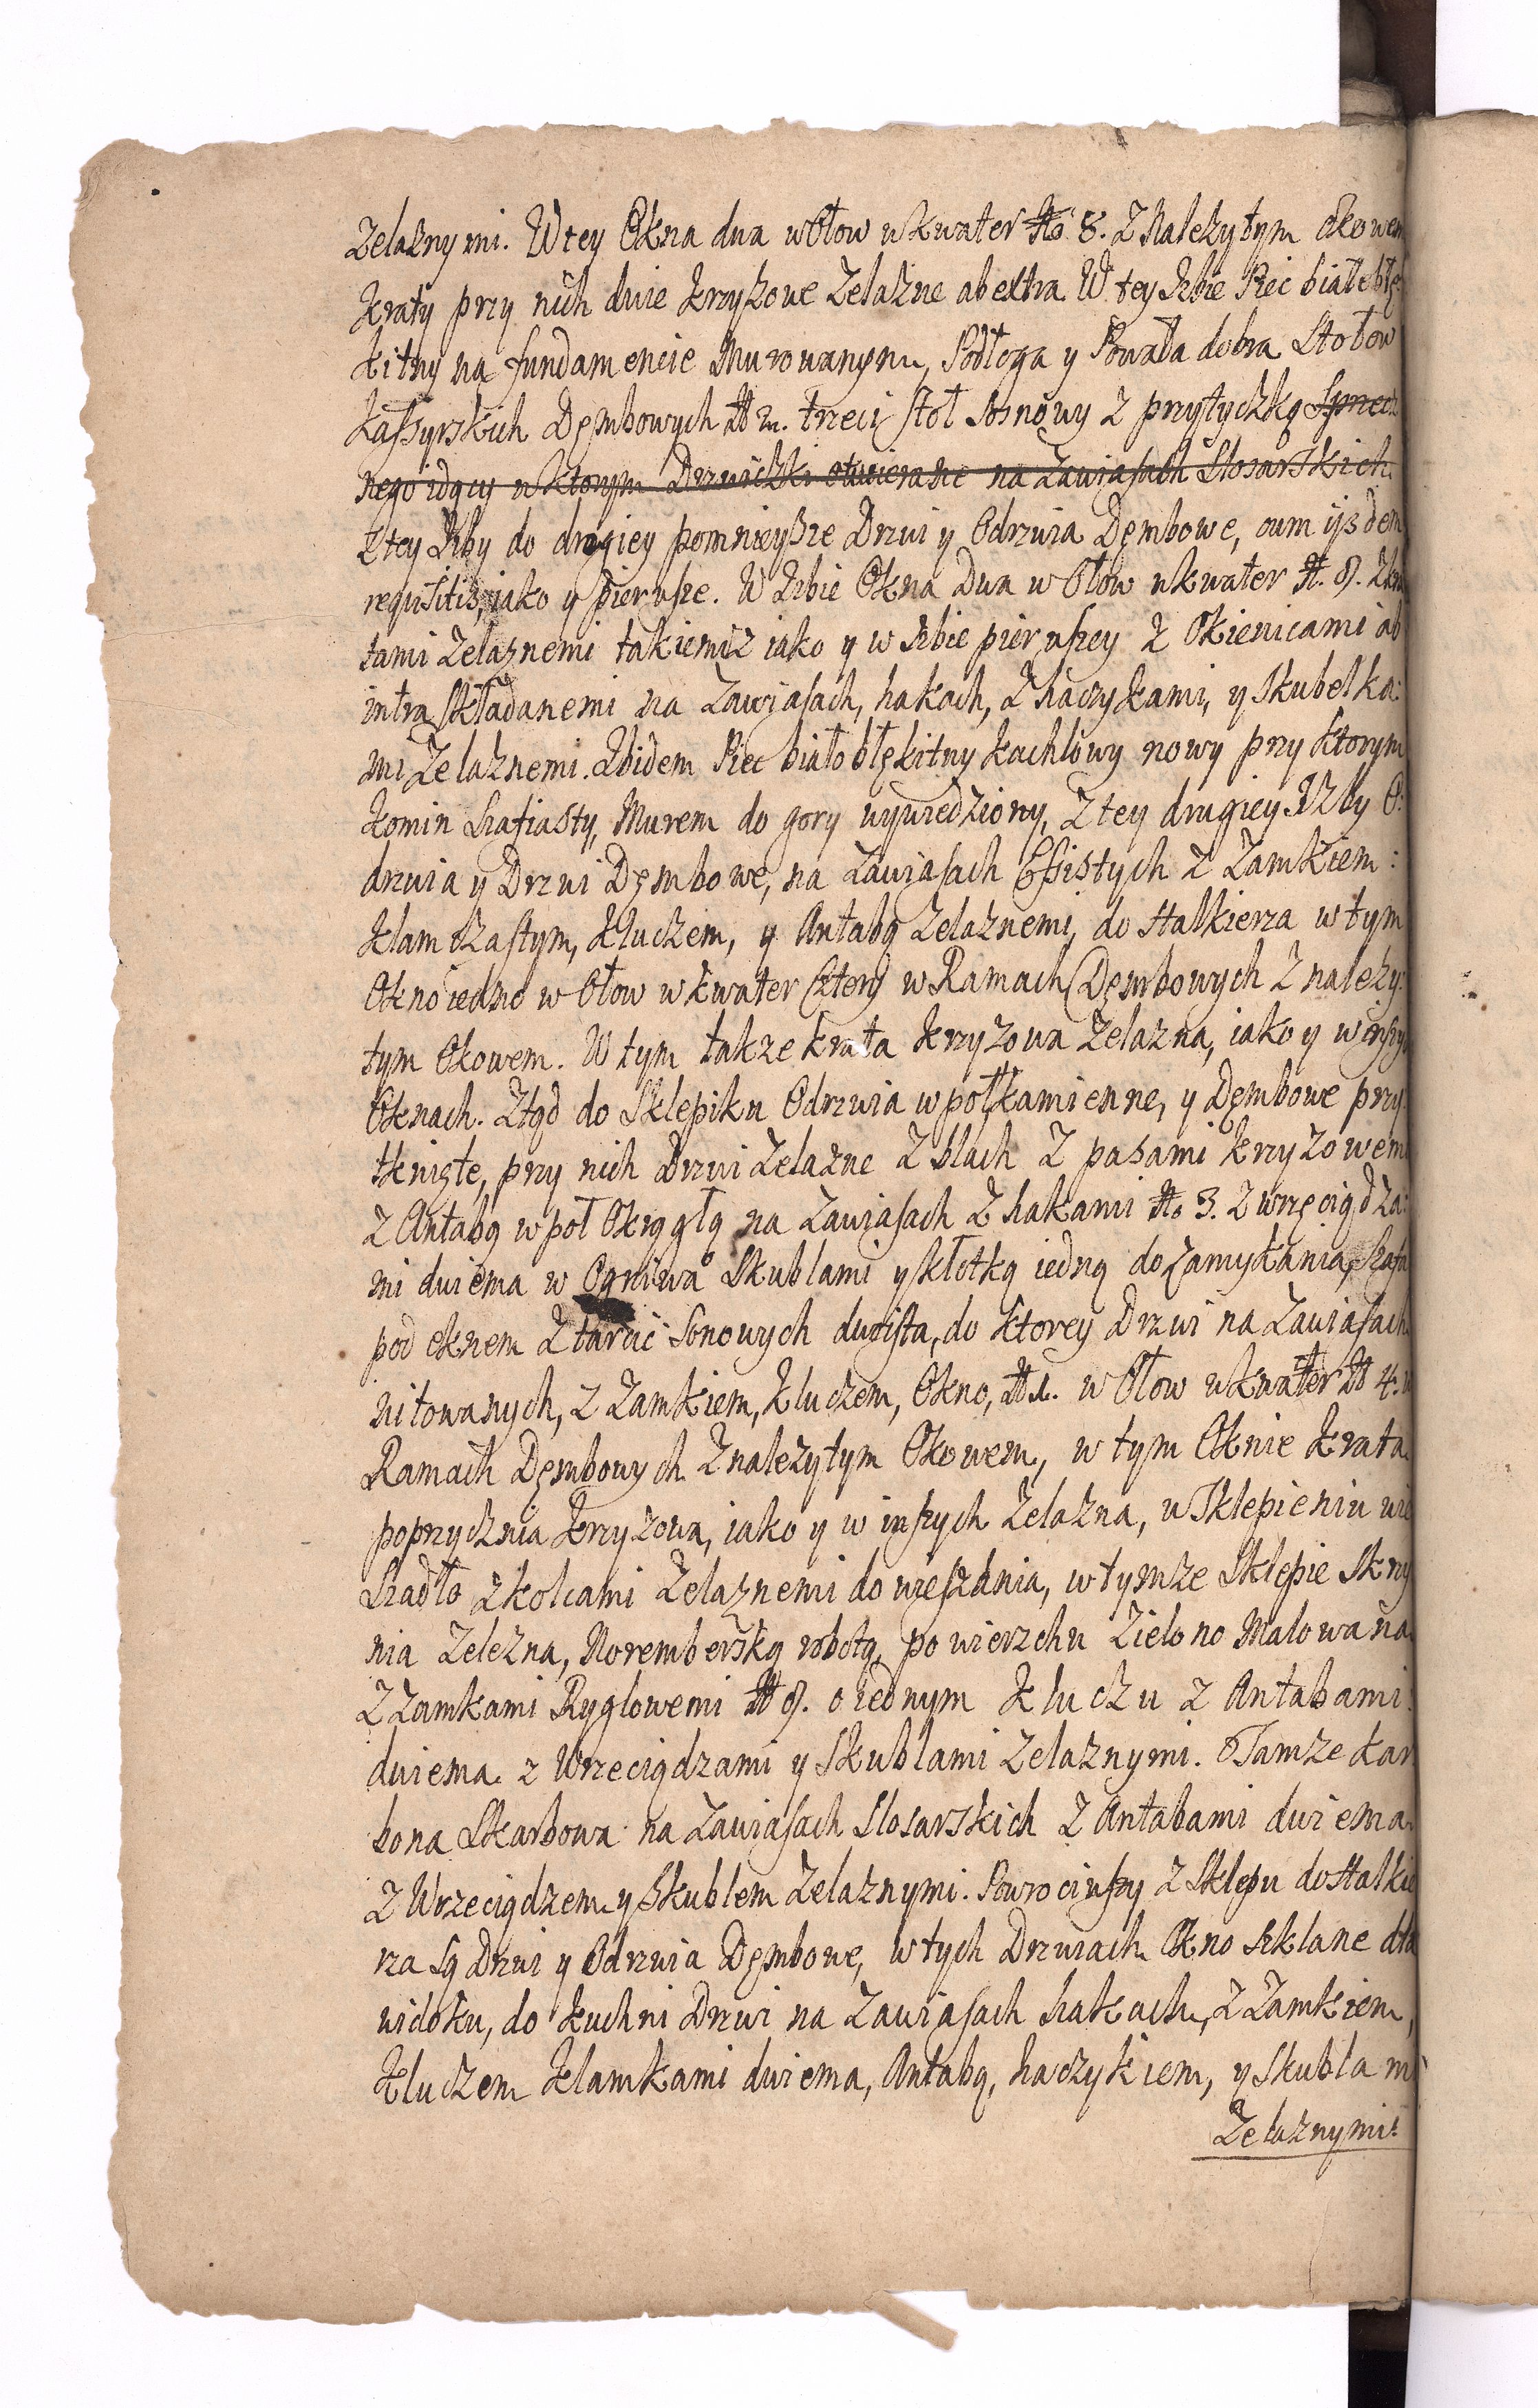 Zelaznymi. W tey Okna dwa w Ołow w kwater No 8. z Nalezytym okowem
kraty przy nich dwie krzyzowe Zelazne ab extra W tey Izbie Piec białobłę
kitny na fundamencie Murowanym, Podłoga y Powała dobra Stołow
kassyrskich Dęmbowych No 2. trzeci stoł sosnowy z przytyczką
nego idący w ktorym Drzwiczki otwierane na Zawiasach Slosarskich.
Z tey Izby do drugiey pomnieysze Drzwi y Odrzwia Dęmbowe, cum iisdem
requisitis, iako y pierwsze. W Izbie Okna Dwa w Ołow w kwater No. 8. z kra
tami Zelaznemi takiemiz iako y w Izbie pierwszey z Okienicami ab
intra składanemi na Zawiasach, hakach, z haczykami, y Skubelka:
mi Zelaznemi. Ibidem Piec białobłękitny kachlowy nowy przy ktorym
komin Szafiasty, Murem do gory wywiedziony, Z tey drugiey Izby O:
drzwia y Drzwi Dęmbowe, na Zawiasach Essistych z Zamkiem:
klamczastym, kluczem, y Antabą Zelaznemi, do Halkierza w tym
Okno iedno w Ołow w kwater Cztery w Ramach Dęmbowych z nalezy:
tym Okowem. W tym takze krata krzyzowa Zelazna, iako y w inszych
Oknach. Ztąd do Sklepiku Odrzwia wpołkamienne, y Dęmbowe przy:
tknięte, przy nich Drzwi Zelazne z blach z pasami krzyzowemi
z Antabą wpoł Okrągłą na Zawiasach z hakami No 3. z wrzęciądza:
mi dwiema w Ogniwa Skublami y kłotką iedną do zamykania, Szafa
pod oknem z tarcic sonowych dwoista, do ktorey Drzwi na Zawiasach
nitowanych, z Zamkiem, kluczem, Okno, No 1. w Ołow w kwater No 4. w
Ramach Dęmbowych z nalezytym Okowem, w tym Oknie krata
poprzycznia krzyzowa, iako y w inszych Zelazna, w Sklepieniu wie
szadło z kolcami Zelaznemi do wieszania, w tymze Sklepie Skrzy
nia Zelezna, Noremberską robotą, powierzchu Zielono Malowana
z Zamkami Ryglowemi No 8. o iednym kluczu z Antabami:
dwiema z Wrzeciądzami y Skublami Zelaznymi. Tamze kar
bona Skarbowa na Zawiasach Slosarskich z Antabami dwiema
z Wrzeciądzem y Skublem Zelaznymi. Powrociwszy z Sklepu do Halkie
rza są Drzwi y Odrzwia Dęmbowe, w tych Drzwiach Okno szklane dla
widoku, do kuchni Drzwi na Zawiasach hakach, z Zamkiem,
kluczem klamkami dwiema, Antabą, haczykiem, y Skublami
Zelaznymi.